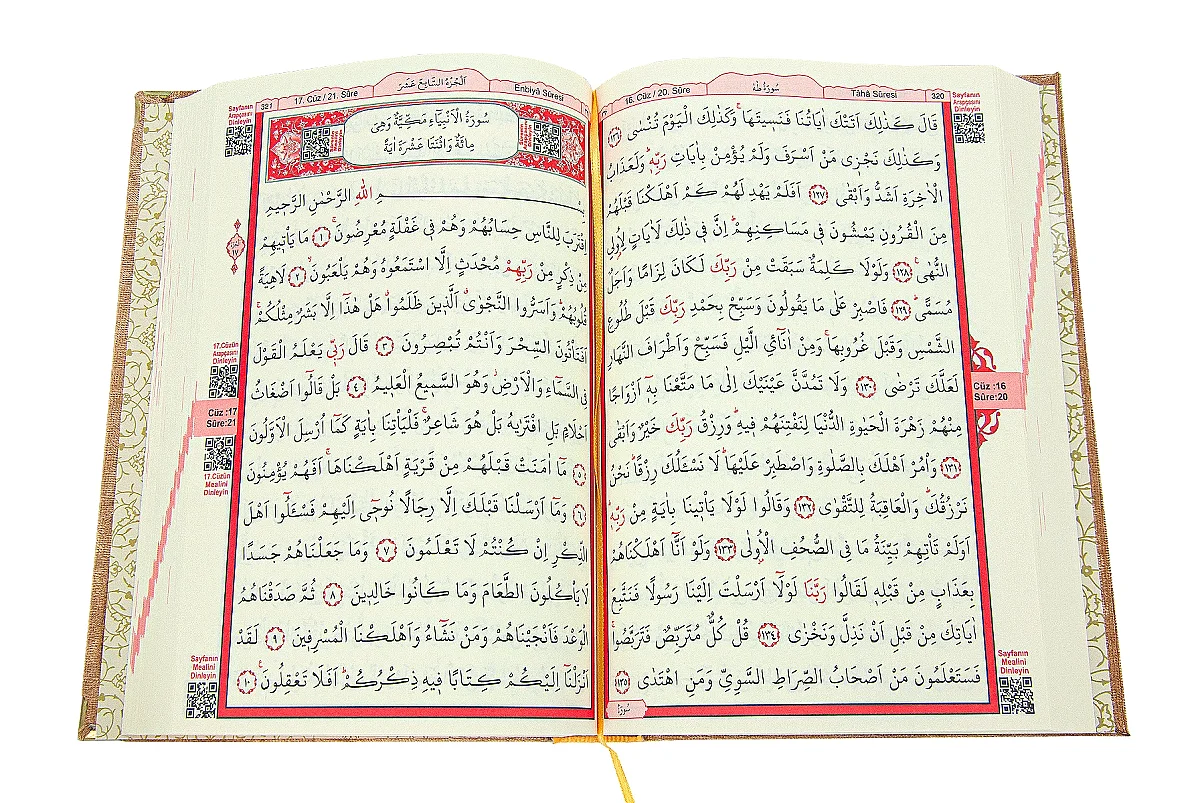 320 Tâhâ Sûresi سُورَةُ طٰهٰ 16. Cüz / 20. Sûre
Sayfanın
Arapçasını
Dinleyin
قَالَ كَذٰلِكَ اَتَتْكَ اٰيَاتُنَا فَنَسٖيتَهَاۚ وَكَذٰلِكَ الْيَوْمَ تُنْسٰى ﴿١٢٦﴾
وَكَذٰلِكَ نَجْزٖى مَنْ اَسْرَفَ وَلَمْ يُؤْمِنْ بِاٰيَاتِ رَبِّهٖؕ وَلَعَذَابُ
الْاٰخِرَةِ اَشَدُّ وَاَبْقٰى ﴿١٢٧﴾ اَفَلَمْ يَهْدِ لَهُمْ كَمْ اَهْلَكْنَا قَبْلَهُمْ
مِنَ الْقُرُونِ يَمْشُونَ فٖى مَسَاكِنِهِمْؕ اِنَّ فٖى ذٰلِكَ لَاٰيَاتٍ لِاُولِى
النُّهٰىۚ ﴿١٢٨﴾ وَلَوْلَا كَلِمَةٌ سَبَقَتْ مِنْ رَبِّكَ لَكَانَ لِزَامًا وَاَجَلٌ
مُسَمًّىؕ ﴿١٢٩﴾ فَاصْبِرْ عَلٰى مَا يَقُولُونَ وَسَبِّحْ بِحَمْدِ رَبِّكَ قَبْلَ طُلُوعِ
الشَّمْسِ وَقَبْلَ غُرُوبِهَاۚ وَمِنْ اٰنَٓائِ الَّيْلِ فَسَبِّحْ وَاَطْرَافَ النَّهَارِ
لَعَلَّكَ تَرْضٰى ﴿١٣٠﴾ وَلَا تَمُدَّنَّ عَيْنَيْكَ اِلٰى مَا مَتَّعْنَا بِهٖٓ اَزْوَاجًا
مِنْهُمْ زَهْرَةَ الْحَيٰوةِ الدُّنْيَا لِنَفْتِنَهُمْ فٖيهِؕ وَرِزْقُ رَبِّكَ خَيْرٌ وَاَبْقٰى
﴿١٣١﴾ وَاْمُرْ اَهْلَكَ بِالصَّلٰوةِ وَاصْطَبِرْ عَلَيْهَاؕ لَا نَسْـَٔلُكَ رِزْقًاؕ نَحْنُ
نَرْزُقُكَؕ وَالْعَاقِبَةُ لِلتَّقْوٰى ﴿١٣٢﴾ وَقَالُوا لَوْلَا يَاْتٖينَا بِاٰيَةٍ مِنْ رَبِّهٖؕ
اَوَلَمْ تَاْتِهِمْ بَيِّنَةُ مَا فِى الصُّحُفِ الْاُولٰى ﴿١٣٣﴾ وَلَوْ اَنَّٓا اَهْلَكْنَاهُمْ
بِعَذَابٍ مِنْ قَبْلِهٖ لَقَالُوا رَبَّنَا لَوْلَٓا اَرْسَلْتَ اِلَيْنَا رَسُولًا فَنَتَّبِعَ
اٰيَاتِكَ مِنْ قَبْلِ اَنْ نَذِلَّ وَنَخْزٰى ﴿١٣٤﴾ قُلْ كُلٌّ مُتَرَبِّصٌ فَتَرَبَّصُواۚ
فَسَتَعْلَمُونَ مَنْ اَصْحَابُ الصِّرَاطِ السَّوِىِّ وَمَنِ اهْتَدٰى ﴿١٣٥﴾
سُورَةُ
Cüz :16
Sûre:20
Sayfanın
Mealini
Dinleyin
Enbiyâ Sûresi اَلْجُزْءُ السَّابِعَ عَشَرَ 17. Cüz / 21. Sûre 321
Sayfanın
Arapçasını
Dinleyin
سُورَةُ الْاَنْبِيَٓاءِ مَكِّيَّةٌ وَهِىَ
مِائَةٌ وَاثْنَتَا عَشْرَةَ اٰيَةً
بِسْمِ اللّٰهِ الرَّحْمٰنِ الرَّحٖيمِ
اِقْتَرَبَ لِلنَّاسِ حِسَابُهُمْ وَهُمْ فٖى غَفْلَةٍ مُعْرِضُونَۚ ﴿١﴾ مَا يَاْتٖيهِمْ
مِنْ ذِكْرٍ مِنْ رَبِّهِمْ مُحْدَثٍ اِلَّا اسْتَمَعُوهُ وَهُمْ يَلْعَبُونَۙ ﴿٢﴾ لَاهِيَةً
قُلُوبُهُمْؕ وَاَسَرُّوا النَّجْوٰىۗ اَلَّذٖينَ ظَلَمُواۗ هَلْ هٰذَٓا اِلَّا بَشَرٌ مِثْلُكُمْۚ
اَفَتَاْتُونَ السِّحْرَ وَاَنْتُمْ تُبْصِرُونَ ﴿٣﴾ قَالَ رَبّٖى يَعْلَمُ الْقَوْلَ
فِى السَّمَٓاءِ وَالْاَرْضِؗ وَهُوَ السَّمٖيعُ الْعَلٖيمُ ﴿٤﴾ بَلْ قَالُٓوا اَضْغَاثُ
اَحْلَامٍ بَلِ افْتَرٰيهُ بَلْ هُوَ شَاعِرٌۚ فَلْيَاْتِنَا بِاٰيَةٍ كَمَٓا اُرْسِلَ الْاَوَّلُونَ
﴿٥﴾ مَٓا اٰمَنَتْ قَبْلَهُمْ مِنْ قَرْيَةٍ اَهْلَكْنَاهَاۚ اَفَهُمْ يُؤْمِنُونَ
﴿٦﴾ وَمَٓا اَرْسَلْنَا قَبْلَكَ اِلَّا رِجَالًا نُوحٖٓى اِلَيْهِمْ فَسْـَٔلُٓوا اَهْلَ
الذِّكْرِ اِنْ كُنْتُمْ لَا تَعْلَمُونَ ﴿٧﴾ وَمَا جَعَلْنَاهُمْ جَسَدًا
لَا يَاْكُلُونَ الطَّعَامَ وَمَا كَانُوا خَالِدٖينَ ﴿٨﴾ ثُمَّ صَدَقْنَاهُمُ
الْوَعْدَ فَاَنْجَيْنَاهُمْ وَمَنْ نَشَٓاءُ وَاَهْلَكْنَا الْمُسْرِفٖينَ ﴿٩﴾ لَقَدْ
اَنْزَلْنَٓا اِلَيْكُمْ كِتَابًا فٖيهِ ذِكْرُكُمْؕ اَفَلَا تَعْقِلُونَۚ ﴿١٠﴾
17.Cüzün
Arapçasını
Dinleyin
Cüz :17
Sûre:21
17.Cüzün
Mealini
Dinleyin
Sayfanın
Mealini
Dinleyin